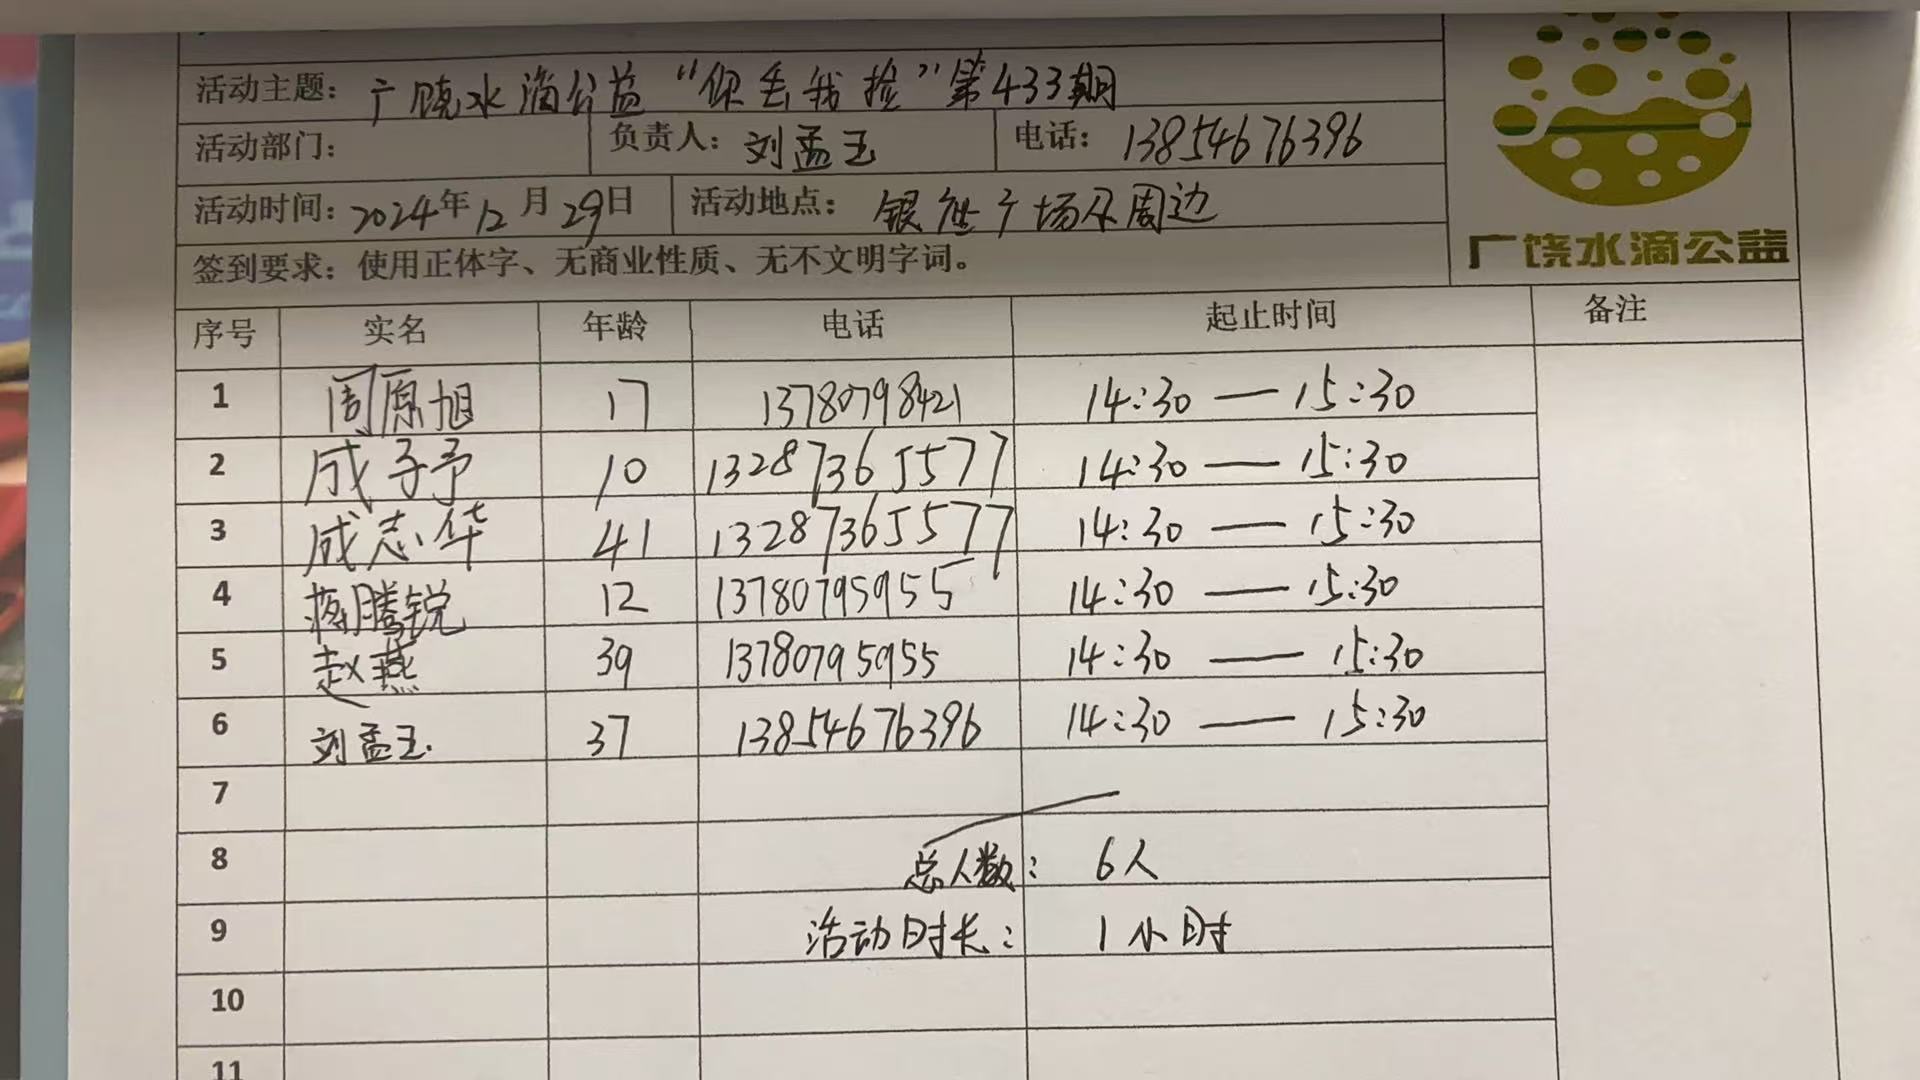 活动主题：广饶水滴公益“你丢我捡”第433期
活动部门： 负责人：刘孟玉 电话：13854676396
活动时间：2024年12月29日 活动地点：银座广场及周边
签到要求：使用正体字、无商业性质、无不文明字词。
广饶水滴公益
序号 实名 年龄 电话 起止时间 备注
1 周原旭 17 13780798421 14:30—15:30
2 成子予 10 13287365577 14:30—15:30
3 成志华 41 13287365577 14:30—15:30
4 蒋腾锐 12 13780795955 14:30—15:30
5 赵燕 39 13780795955 14:30—15:30
6 刘孟玉 37 13854676396 14:30—15:30
7
8 总人数： 6人
9 活动时长： 1小时
10
11